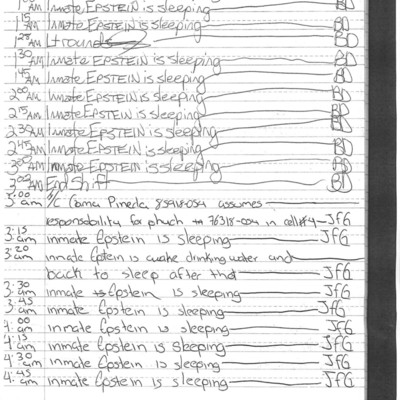 AM Inmate EPSTEIN is sleeping BD
1:15 AM Inmate EPSTEIN is sleeping BD
1:28 AM Lt rounds BD
1:30 AM Inmate EPSTEIN is sleeping BD
1:45 AM Inmate EPSTEIN is sleeping BD
2:00 AM Inmate EPSTEIN is sleeping BD
2:15 AM Inmate EPSTEIN is sleeping BD
2:30 AM Inmate EPSTEIN is sleeping BD
2:45 AM Inmate EPSTEIN is sleeping BD
3:00 AM Inmate EPSTEIN is sleeping BD
AM End Shift BD
3:00 am I/C Pineda 85918-054 assumes
responsibility for 76318-054 in cell #4 JfG
3:15 am inmate Epstein is sleeping JfG
3:20 am inmate Epstein is awake drinking water and
back to sleep after that JfG
3:30 am inmate Epstein is sleeping JfG
3:45 am inmate Epstein is sleeping JfG
4:00 am inmate Epstein is sleeping JfG
4:15 am inmate Epstein is sleeping JfG
4:30 am inmate Epstein is sleeping JfG
4:45 am inmate Epstein is sleeping JfG